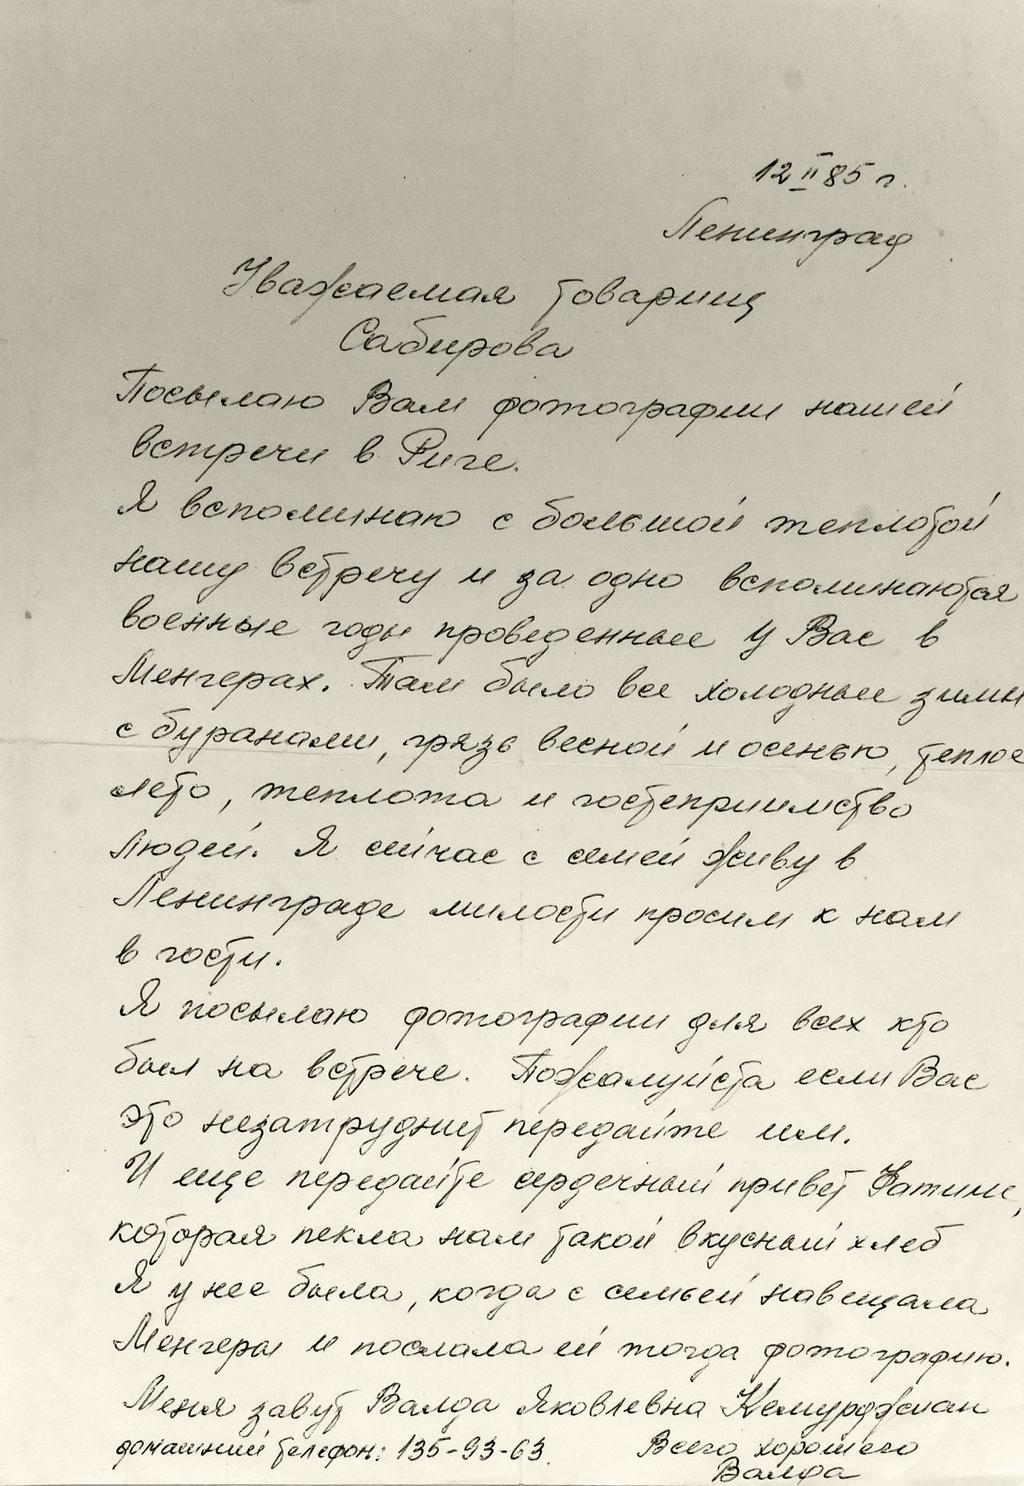 12 II 85 г.
Ленинград
Уважаемая товарищ
Сабирова
Посылаю Вам фотографии нашей
встречи в Риге.
Я вспоминаю с большой теплотой
нашу встречу и за одно вспоминаются
военные годы проведенные у Вас в
Менгерах. Там было все холодные зимы
с буранами, грязь весной и осенью, теплое
лето, теплота и гостеприимство
людей. Я сейчас с семей живу в
Ленинграде милости просим к нам
в гости.
Я посылаю фотографии для всех кто
был на встрече. Пожалуйста если Вас
это незатруднит передайте им.
И еще передайте сердечный привет Фатиме,
которая пекла нам такой вкусный хлеб
Я у нее была, когда с семьей навещала
Менгеры и послала ей тогда фотографию.
Меня завут Валда Яковлевна Кемурджиан
домашний телефон: 135-93-63.
Всего хорошего
Валда